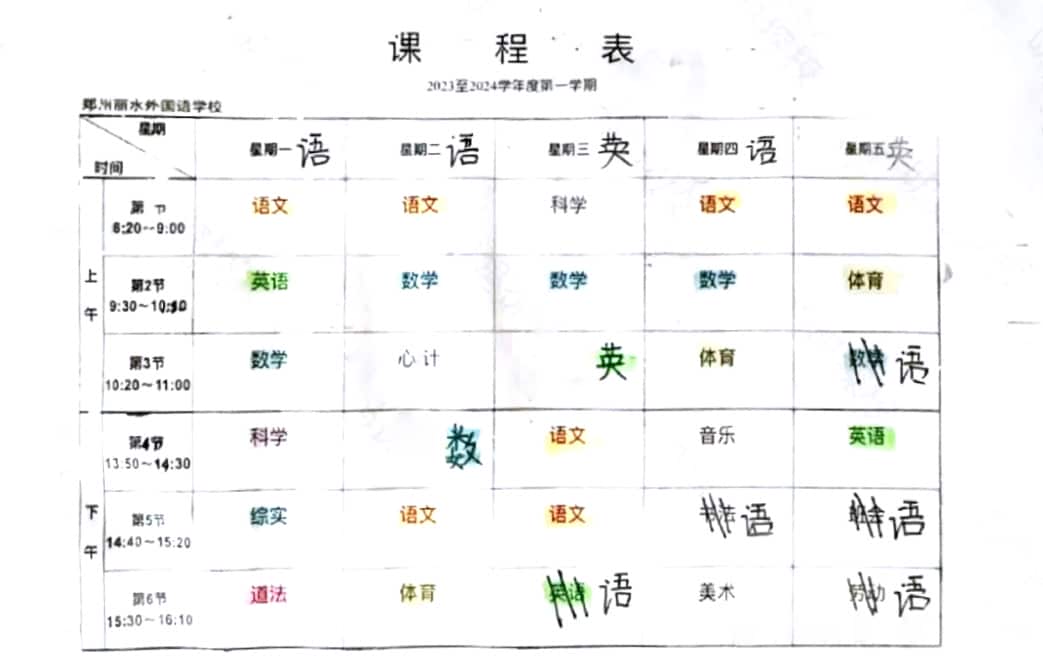 课 程 表
2023至2024学年度第一学期
郑州丽水外国语学校
星期 时间 星期一 语 星期二 语 星期三 英 星期四 语 星期五 英
上午
第 节 8:20~9:00 语文 语文 科学 语文 语文
第2节 9:30~10:10 英语 数学 数学 数学 体育
第3节 10:20~11:00 数学 心计 英 体育 语
下午
第4节 13:50~14:30 科学 数 语文 音乐 英语
第5节 14:40~15:20 综实 语文 语文 语 语
第6节 15:30~16:10 道法 体育 英语 语 美术 劳动 语